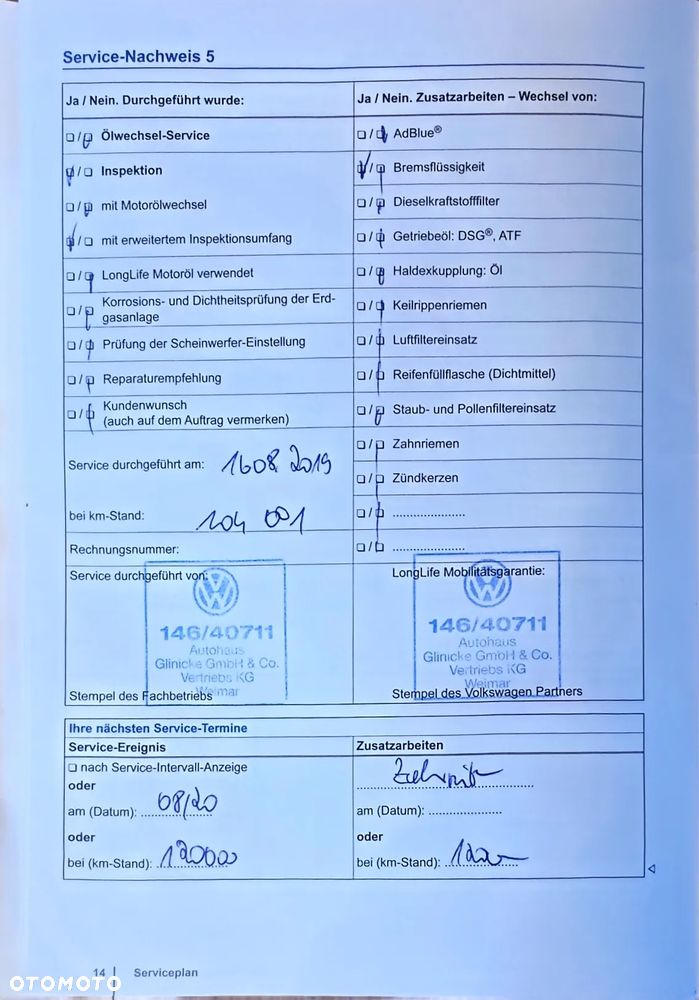 Service-Nachweis 5
Ja / Nein. Durchgeführt wurde:
☐ / ☐ Ölwechsel-Service
☐ / ☐ Inspektion
☐ / ☐ mit Motorölwechsel
☐ / ☐ mit erweitertem Inspektionsumfang
☐ / ☐ LongLife Motoröl verwendet
☐ / ☐ Korrosions- und Dichtheitsprüfung der Erd-
gasanlage
☐ / ☐ Prüfung der Scheinwerfer-Einstellung
☐ / ☐ Reparaturempfehlung
☐ / ☐ Kundenwunsch
(auch auf dem Auftrag vermerken)
Service durchgeführt am: 1608 2019
bei km-Stand: 104 001
Rechnungsnummer:
Service durchgeführt von:
146/40711
Autohaus
Glinicke GmbH & Co.
Vertriebs KG
Weimar
Stempel des Fachbetriebs
Ja / Nein. Zusatzarbeiten – Wechsel von:
☐ / ☐ AdBlue®
☐ / ☐ Bremsflüssigkeit
☐ / ☐ Dieselkraftstofffilter
☐ / ☐ Getriebeöl: DSG®, ATF
☐ / ☐ Haldexkupplung: Öl
☐ / ☐ Keilrippenriemen
☐ / ☐ Luftfiltereinsatz
☐ / ☐ Reifenfüllflasche (Dichtmittel)
☐ / ☐ Staub- und Pollenfiltereinsatz
☐ / ☐ Zahnriemen
☐ / ☐ Zündkerzen
☐ / ☐ ......................
☐ / ☐ ......................
LongLife Mobilitätsgarantie:
146/40711
Autohaus
Glinicke GmbH & Co.
Vertriebs KG
Weimar
Stempel des Volkswagen Partners
Ihre nächsten Service-Termine
Service-Ereignis
☐ nach Service-Intervall-Anzeige
oder
am (Datum): 08/20
oder
bei (km-Stand):
Zusatzarbeiten
am (Datum): ......................
oder
bei (km-Stand):
14 | Serviceplan
OTOMOTO